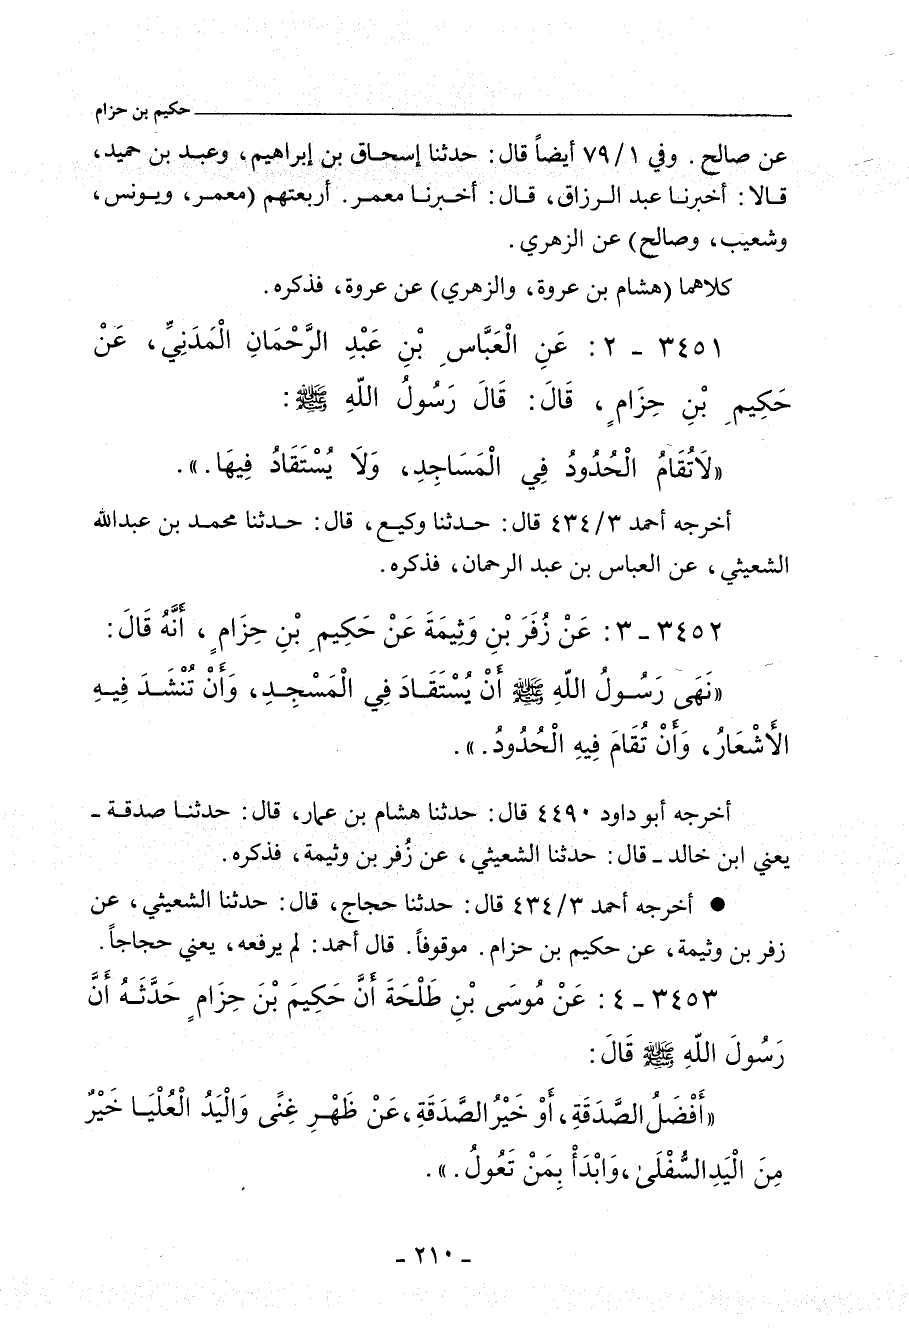 حكيم بن حزام
عن صالح. وفي ٧٩/١ أيضاً قال: حدثنا إسحاق بن إبراهيم، وعبد بن حميد،
قالا: أخبرنا عبد الرزاق، قال: أخبرنا معمر. أربعتهم (معمر، ويونس،
وشعيب، وصالح) عن الزهري.
كلاهما (هشام بن عروة، والزهري) عن عروة، فذكره.
٣٤٥١ - ٢: عَنِ الْعَبَّاسِ بْنِ عَبْدِ الرَّحْمَانِ الْمَدَنِيِّ، عَنْ
حَكِيمِ بْنِ حِزَامٍ، قَالَ: قَالَ رَسُولُ اللّهِ ﷺ:
«لَاتُقَامُ الْحُدُودُ فِي الْمَسَاجِدِ، وَلَا يُسْتَقَادُ فِيهَا.».
أخرجه أحمد ٤٣٤/٣ قال: حدثنا وكيع، قال: حدثنا محمد بن عبدالله
الشعيثي، عن العباس بن عبد الرحمان، فذكره.
٣٤٥٢ - ٣: عَنْ زُفَرَ بْنِ وَثِيمَةَ عَنْ حَكِيمِ بْنِ حِزَامٍ، أَنَّهُ قَالَ:
«نَهَى رَسُولُ اللّهِ ﷺ أَنْ يُسْتَقَادَ فِي الْمَسْجِدِ، وَأَنْ تُنْشَدَ فِيهِ
الأَشْعَارُ، وَأَنْ تُقَامَ فِيهِ الْحُدُودُ.».
أخرجه أبو داود ٤٤٩٠ قال: حدثنا هشام بن عمار، قال: حدثنا صدقة -
يعني ابن خالد - قال: حدثنا الشعيثي، عن زُفر بن وثيمة، فذكره.
● أخرجه أحمد ٤٣٤/٣ قال: حدثنا حجاج، قال: حدثنا الشعيثي، عن
زفر بن وثيمة، عن حكيم بن حزام. موقوفاً. قال أحمد: لم يرفعه، يعني حجاجاً.
٣٤٥٣ - ٤: عَنْ مُوسَى بْنِ طَلْحَةَ أَنَّ حَكِيمَ بْنَ حِزَامٍ حَدَّثَهُ أَنَّ
رَسُولَ اللّهِ ﷺ قَالَ:
«أَفْضَلُ الصَّدَقَةِ، أَوْ خَيْرُ الصَّدَقَةِ، عَنْ ظَهْرِ غِنًى وَالْيَدُ الْعُلْيَا خَيْرٌ
مِنَ الْيَدِ السُّفْلَىٰ، وَابْدَأْ بِمَنْ تَعُولُ.».
- ٢١٠ -